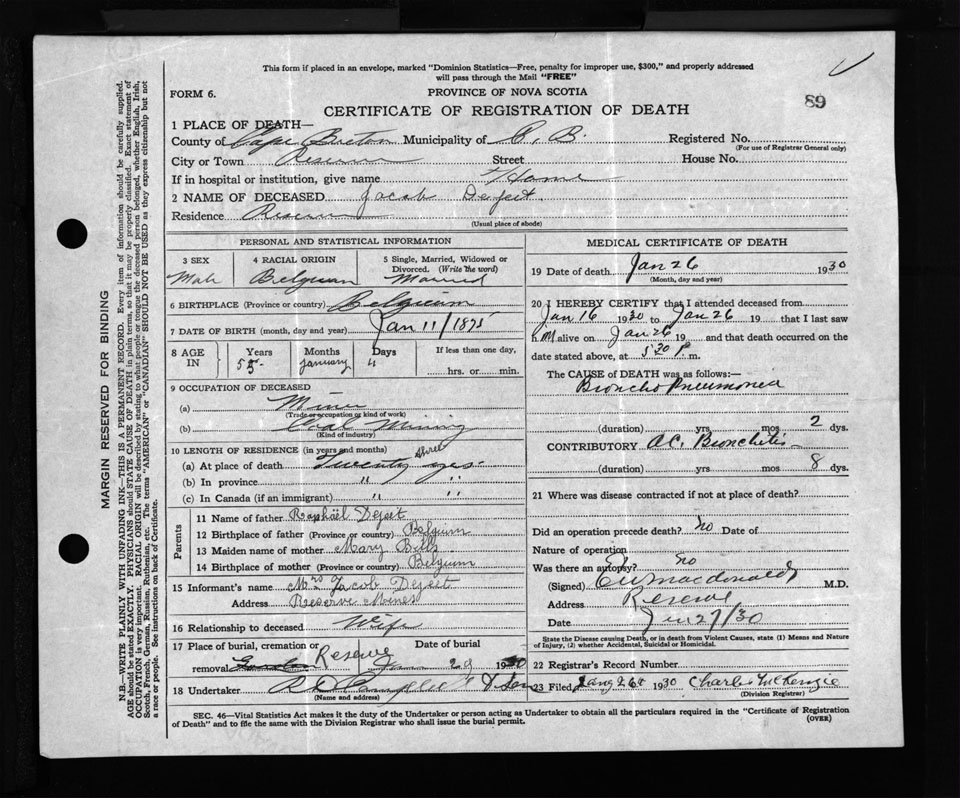 This form if placed in an envelope, marked "Dominion Statistics—Free, penalty for improper use, $300," and properly addressed
will pass through the Mail "FREE"
FORM 6.
PROVINCE OF NOVA SCOTIA
89
CERTIFICATE OF REGISTRATION OF DEATH
1 PLACE OF DEATH—
County of Cape Breton Municipality of C. B. Registered No.
(For use of Registrar General only)
City or Town Reserve Street House No.
If in hospital or institution, give name Home
2 NAME OF DECEASED Jacob Dejeet
Residence Reserve
(Usual place of abode)
PERSONAL AND STATISTICAL INFORMATION
3 SEX
Male
4 RACIAL ORIGIN
Belgium
5 Single, Married, Widowed or
Divorced. (Write the word)
Married
6 BIRTHPLACE (Province or country) Belgium
7 DATE OF BIRTH (month, day and year) Jan 11/1875
8 AGE
IN
Years
55
Months
January
Days
11
If less than one day,
hrs. or min.
9 OCCUPATION OF DECEASED
(a) Miner
(Trade or occupation or kind of work)
(b) Coal Mining
(Kind of industry)
10 LENGTH OF RESIDENCE (in years and months)
(a) At place of death Twenty three yrs.
(b) In province " "
(c) In Canada (if an immigrant) " "
Parents
11 Name of father Raphaël Dejeet
12 Birthplace of father (Province or country) Belgium
13 Maiden name of mother Mary
14 Birthplace of mother (Province or country) Belgium
15 Informant's name Mrs Jacob Dejeet
Address Reserve Mines
16 Relationship to deceased Wife
17 Place of burial, cremation or
removal Reserve
Date of burial
Jan 29 1930
18 Undertaker & Son
(Name and address)
MEDICAL CERTIFICATE OF DEATH
19 Date of death Jan 26 1930
(Month, day and year)
20 I HEREBY CERTIFY that I attended deceased from
Jan 16 1930 to Jan 26 19 that I last saw
h m alive on Jan 26 19 and that death occurred on the
date stated above, at 5 30 P. m.
The CAUSE OF DEATH was as follows:
Broncho Pneumonia
(duration) yrs mos 2 dys.
CONTRIBUTORY AC. Bronchitis
(duration) yrs mos 8 dys.
21 Where was disease contracted if not at place of death?
Did an operation precede death? no Date of
Nature of operation
Was there an autopsy? no
(Signed) Macdonald M.D.
Address Reserve
Date Jan 27/30
State the Disease causing Death, or in death from Violent Causes, state (1) Means and Nature
of Injury, (2) whether Accidental, Suicidal or Homicidal.
22 Registrar's Record Number
23 Filed Jany 26th 1930 Charles McKenzie
(Division Registrar)
SEC. 46—Vital Statistics Act makes it the duty of the Undertaker or person acting as Undertaker to obtain all the particulars required in the "Certificate of Registration
of Death" and to file the same with the Division Registrar who shall issue the burial permit.
(OVER)
MARGIN RESERVED FOR BINDING
N.B.—WRITE PLAINLY WITH UNFADING INK—THIS IS A PERMANENT RECORD. Every item of information should be carefully supplied.
AGE should be stated EXACTLY. PHYSICIANS should STATE CAUSE OF DEATH in plain terms, so that it may be properly classified. Exact statement of
OCCUPATION is very important. RACIAL ORIGIN will be described by stating to what people or tongue the deceased person belonged, whether English, Irish,
Scotch, French, German, Russian, Ruthenian, etc. The terms "AMERICAN" or "CANADIAN" SHOULD NOT BE USED as they express citizenship but not
a race or people. See instructions on back of Certificate.